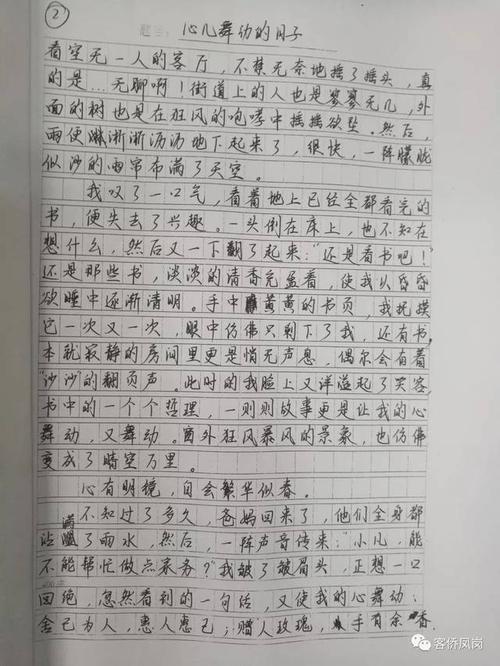 ②
心儿舞动的日子
看空无一人的客厅，不禁无奈地摇了摇头，真
的是…无聊啊！街道上的人也是寥寥无几，外
面的树也是在狂风的咆哮中摇摇欲坠。然后，
雨便淋淅淅沥沥地下起来了，很快，一阵朦胧
似沙的雨帘布满了天空。
我叹了一口气，看着地上已经全都看完的
书，便失去了兴趣。一头倒在床上，也不知在
想什么，然后又一下翻了起来："还是看书吧！"
还是那些书，淡淡的清香充盈着，使我从昏昏
欲睡中逐渐清明。手中黄黄的书页，我抚摸
它一次又一次，眼中仿佛只剩下了我，还有书。
本就寂静的房间里更是悄无声息，偶尔会有着
"沙沙"的翻页声。此时的我脸上又洋溢起了笑容，
书中的一个个哲理，一则则故事更是让我的心
舞动，又舞动。窗外狂风暴风的景象，也仿佛
变成了晴空万里。
心有明镜，自会繁华似春。
不知过了多久，爸妈回来了，他们全身都
沾满了雨水，然后，一阵声音传来："小儿，能
不能帮忙做点家务？"我皱了皱眉头，正想一口
回绝，忽然看到的一句话，又使我的心舞动：
舍己为人，惠人惠己；赠人玫瑰，手有余香。
客侨凤岗